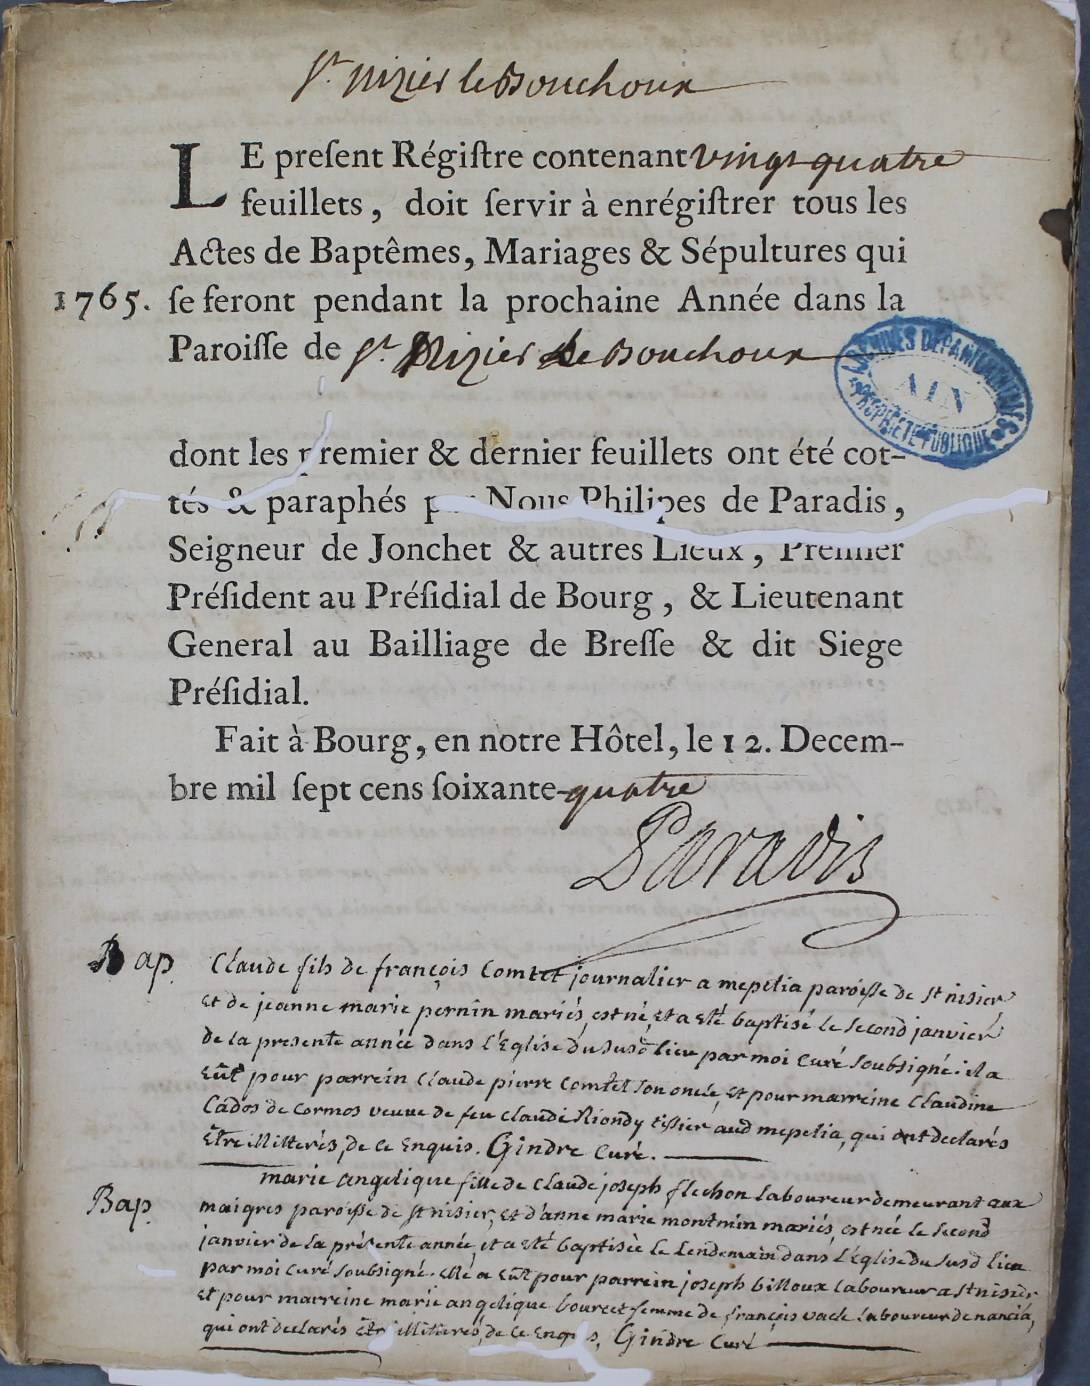 St. Nizier le Bouchoux
LE preſent Régiſtre contenant vingt quatre
feuillets, doit ſervir à enrégiſtrer tous les
Actes de Baptêmes, Mariages & Sépultures qui
1765. ſe feront pendant la prochaine Année dans la
Paroiſſe de St. Nizier Le Bouchoux
ARCHIVES DEPARTEMENTALES
AIN
PROPRIETE PUBLIQUE
dont les premier & dernier feuillets ont été cot-
tés & paraphés par Nous Philipes de Paradis,
Seigneur de Jonchet & autres Lieux, Premier
Préſident au Préſidial de Bourg, & Lieutenant
General au Bailliage de Breſſe & dit Siege
Préſidial.
Fait à Bourg, en notre Hôtel, le 12. Decem-
bre mil ſept cens ſoixante-quatre
Paradis
Bap. Claude fils de françois Comtet journalier a mepelia paroisse de st nisier
et de jeanne marie pernin mariés, est né, et a eté baptisé le second janvier
de la presente année dans l'Eglise du susd lieu par moi Curé soubsigné. il a
eût pour parrein Claude pierre Comtet son oncle, et pour marreine Claudine
Cados de Cormos veuve de feu Claude Riondy tissier aud mepelia, qui ont declarés
être illitterés, de ce enquis. Gindre Curé.
Bap. marie angelique fille de Claude joseph flechon laboureur demeurant aux
maigres paroisse de st nisier, et d'anne marie montmin mariés, est née le second
janvier de la présente année, et a eté baptisèe le lendemain dans l'Eglise du susd lieu
par moi Curé soubsigné. elle a eût pour parrein joseph billoux laboureur a st nisier
et pour marreine marie angelique bourcet femme de françois vacle laboureur de nancia,
qui ont declarés être illitterés, de ce enquis, Gindre Curé